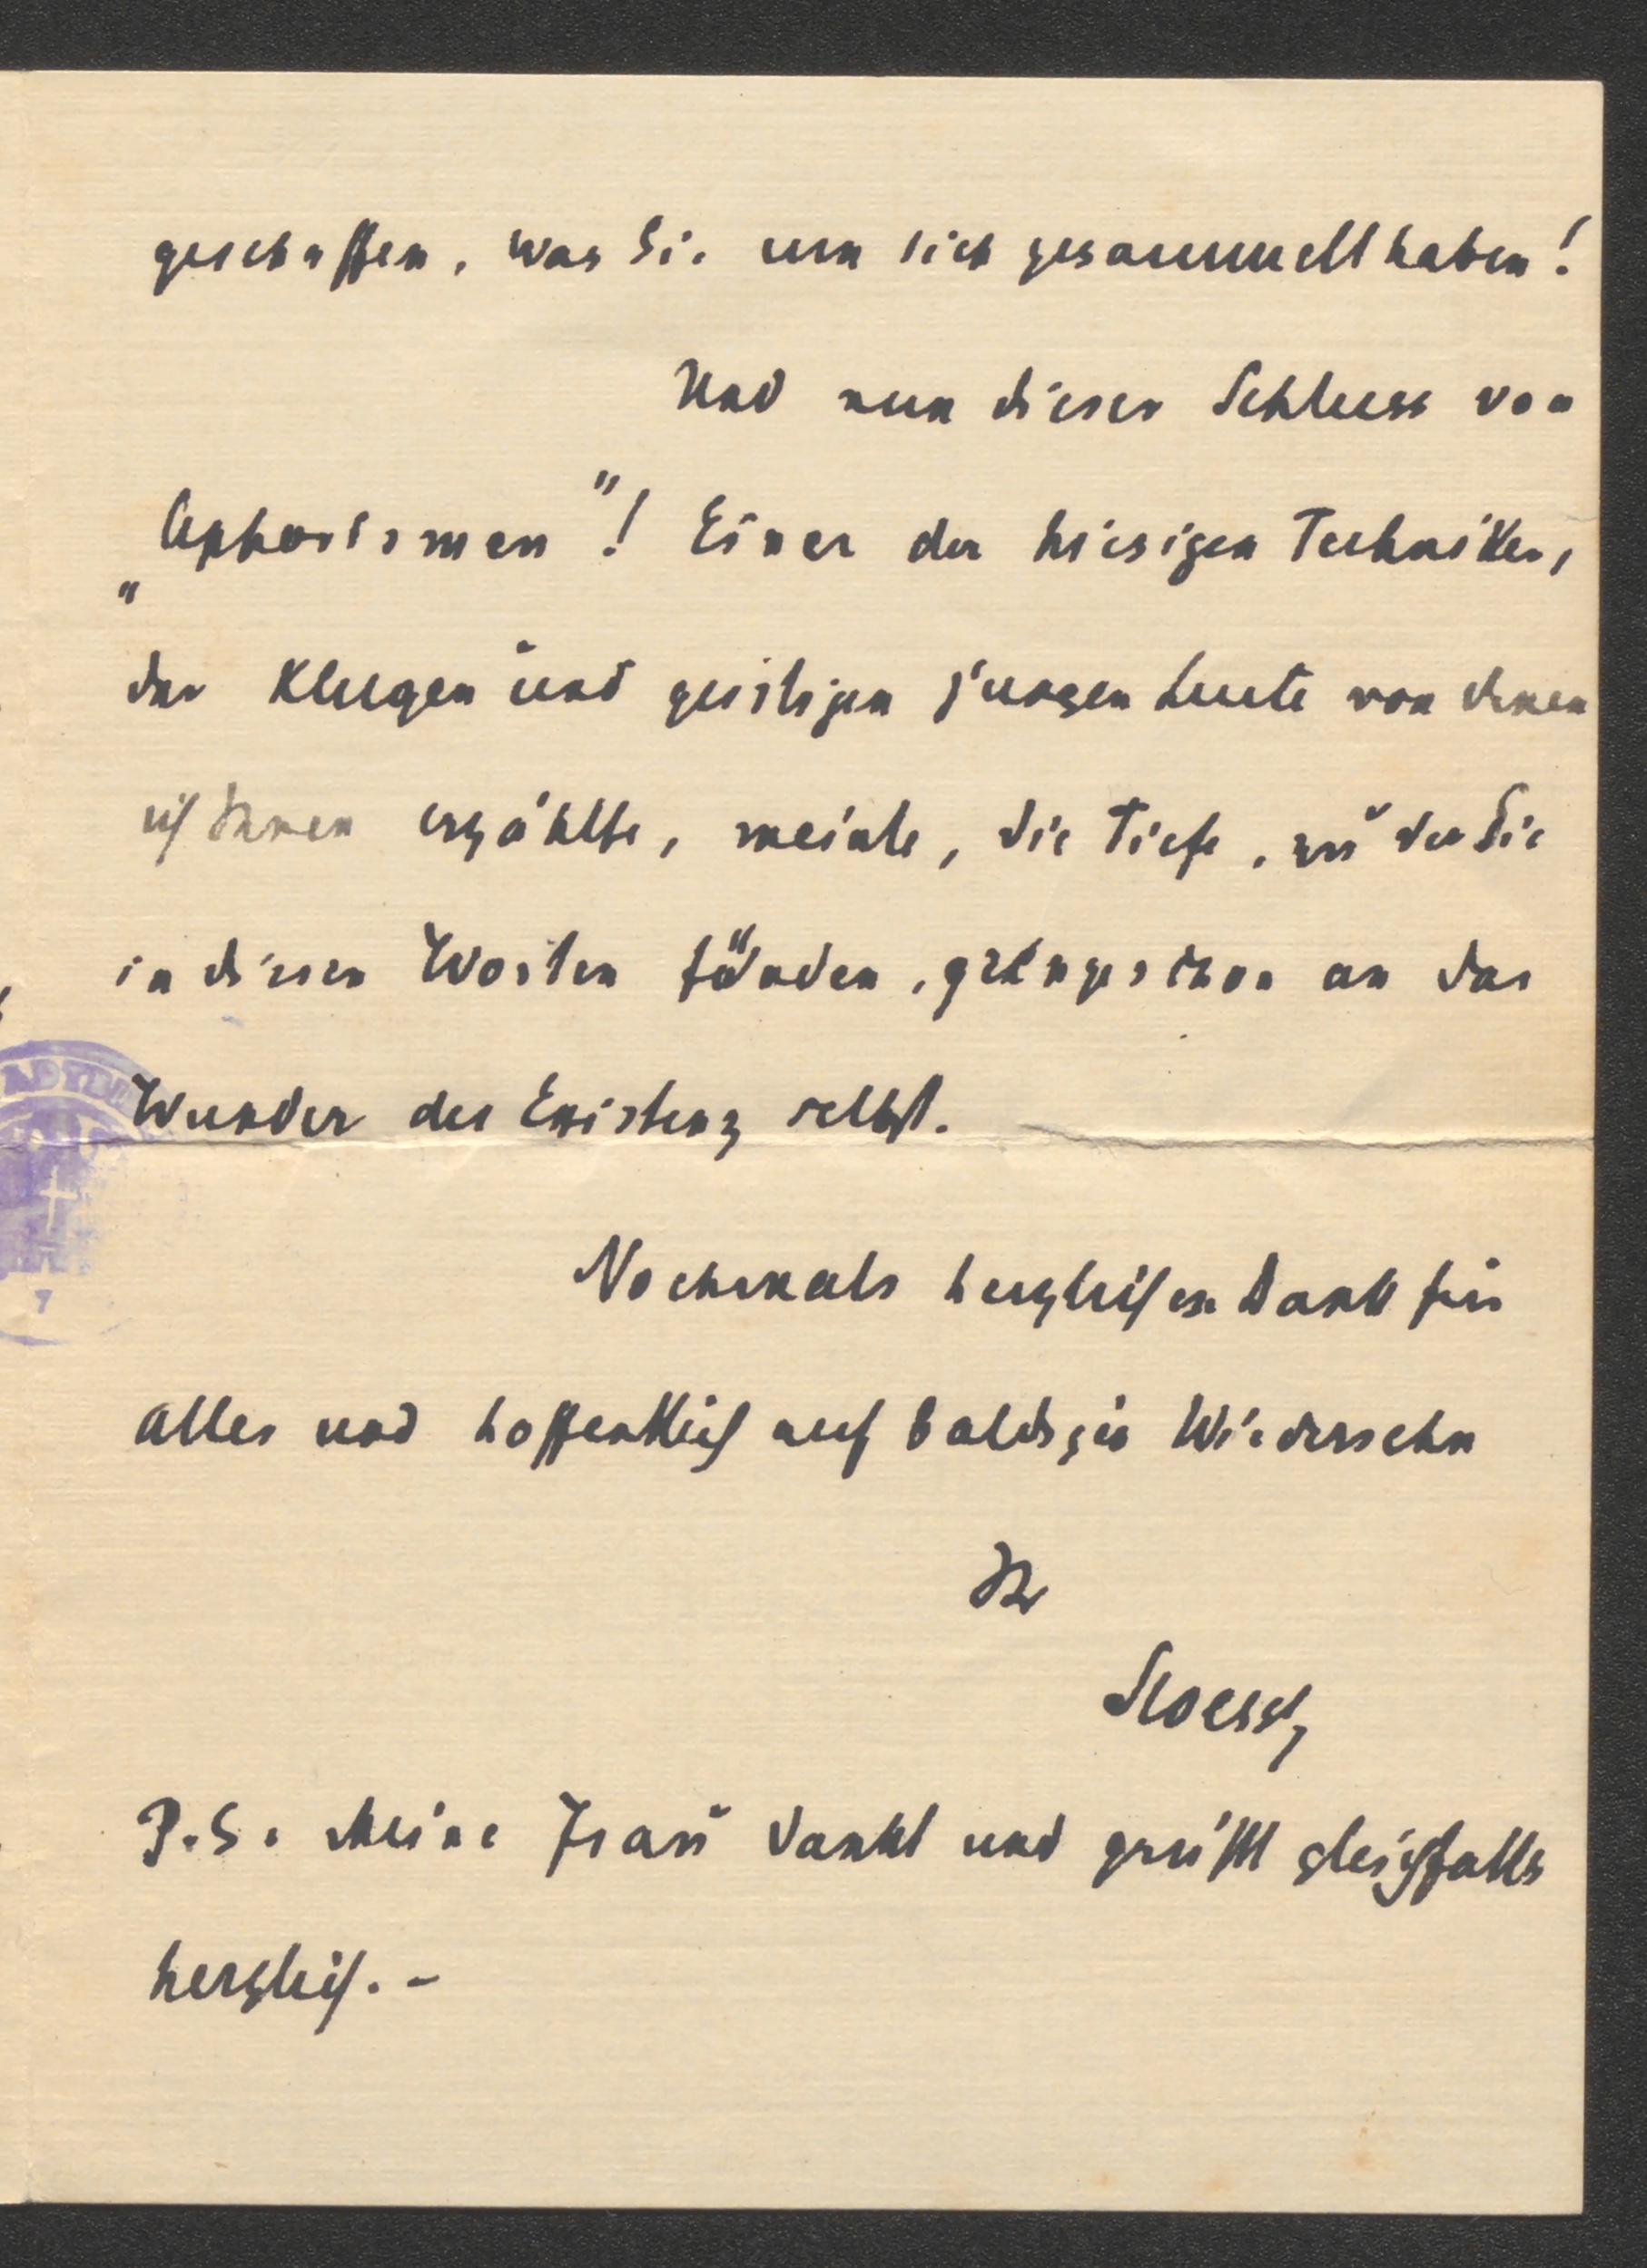 geschaffen, was Sie um sich gesammelt haben!
Und nun dieser Schluss von
„Aphorismen"! Einer der hiesigen Techniker,
der klugen und geistigen jungen Leute von denen
ich Ihnen erzählte, meinte, die Tiefe, zu der Sie
in diesen Worten fänden, grenge schon an das
Wunder der Existenz selbst.
Nochmals herzlichen Dank für
alles und hoffentlich auf baldiges Wiedersehn
Ihr
Stoessl
P.S. Meine Frau dankt und grüßt gleichfalls
herzlich. –
7